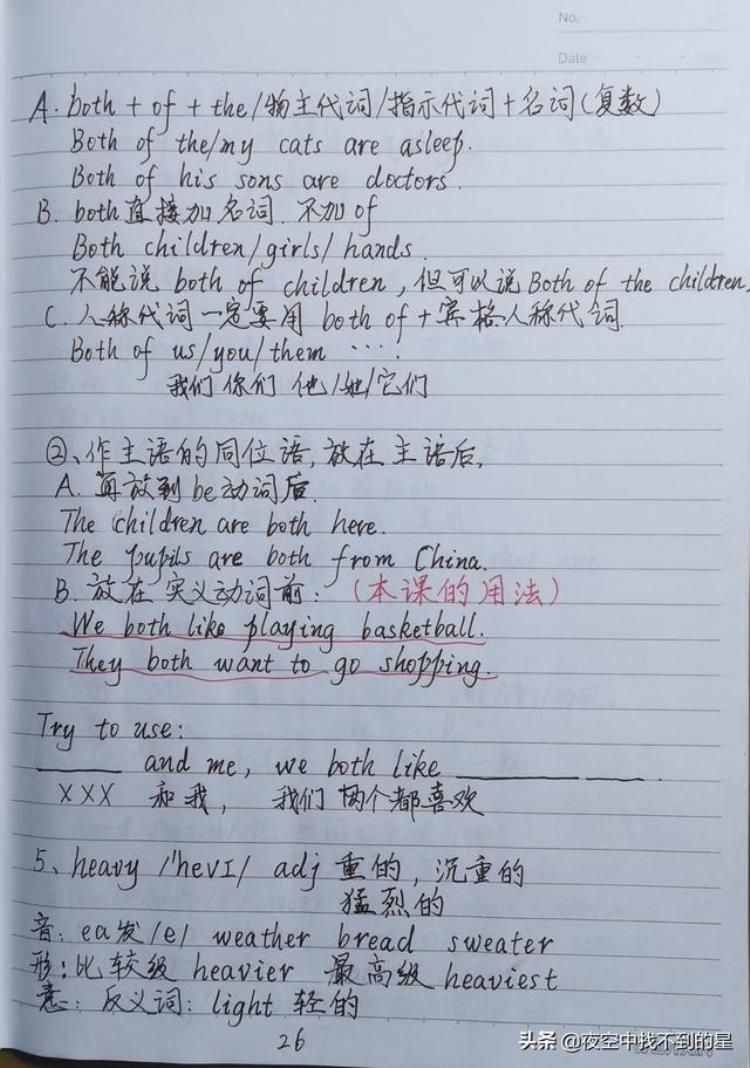 No.
Date
A. both + of + the/物主代词/指示代词+名词(复数)
Both of the/my cats are asleep.
Both of his sons are doctors.
B. both直接加名词.不加of
Both children/girls/hands.
不能说 both of children,但可以说Both of the children.
C. 人称代词一定要用 both of + 宾格人称代词.
Both of us/you/them ····.
我们 你们 他/她/它们
②、作主语的同位语,放在主语后,
A. 再放到be动词后.
The children are both here.
The pupils are both from China.
B. 放在实义动词前:(本课的用法)
We both like playing basketball.
They both want to go shopping.
Try to use:
______ and me, we both like _________ ____.
XXX 和我, 我们两个都喜欢
5、heavy /'hevI/ adj 重的,沉重的
猛烈的
音: ea发/e/ weather bread sweater
形:比较级 heavier 最高级 heaviest
意: 反义词: light 轻的
26
头条 @夜空中找不到的星